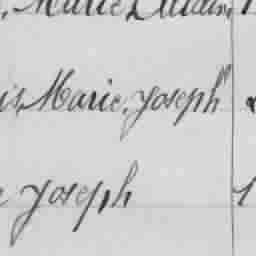 Marie
is, Marie, Joseph
Joseph